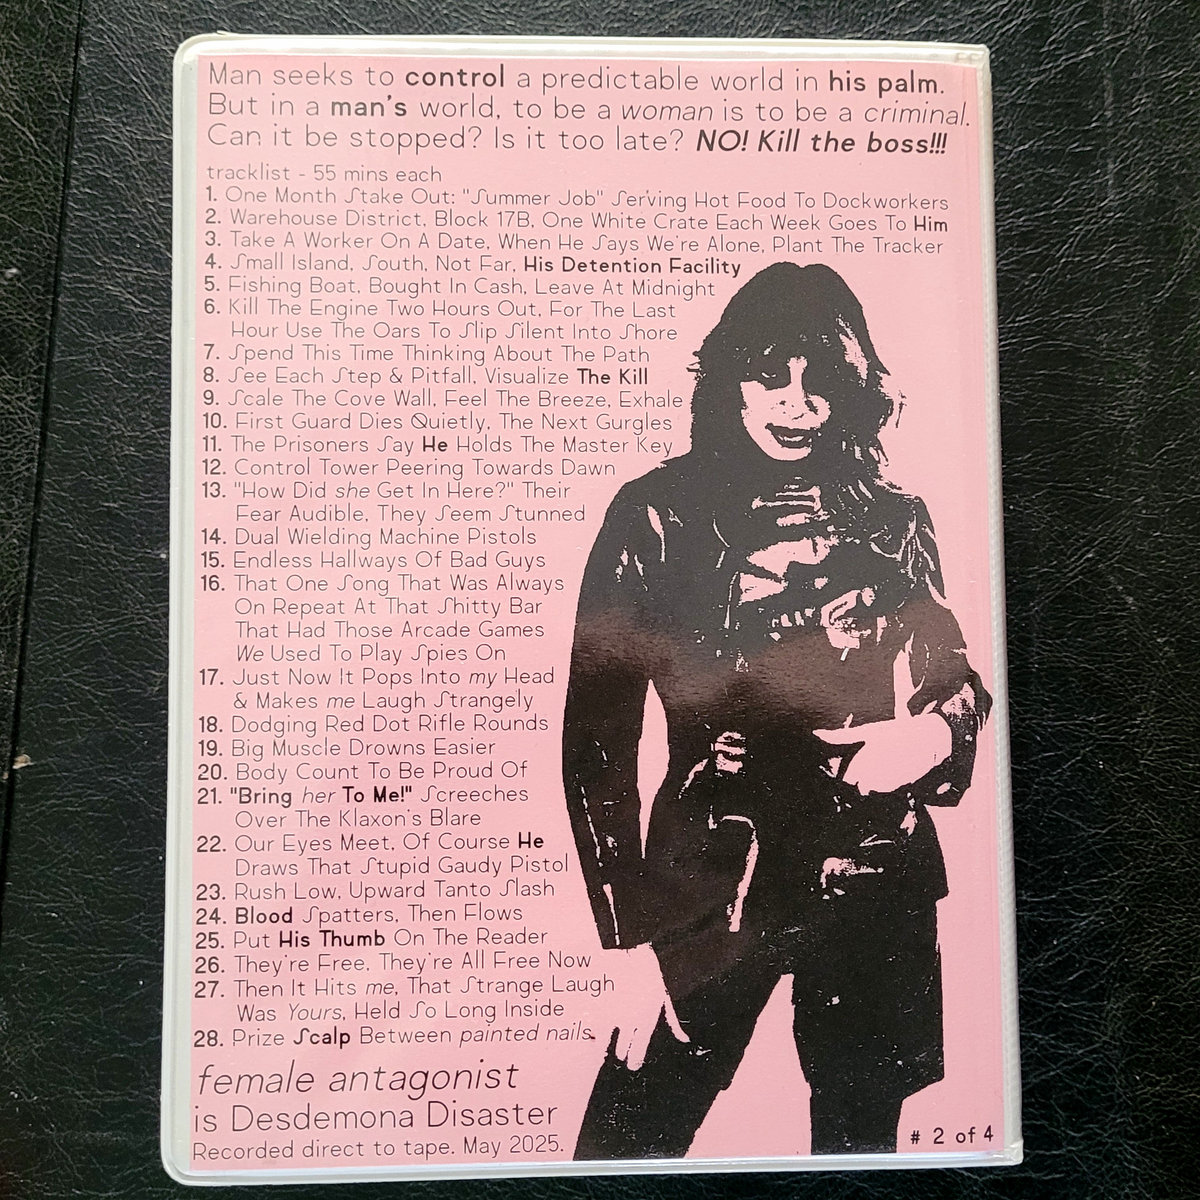 Man seeks to control a predictable world in his palm.
But in a man's world, to be a woman is to be a criminal.
Can it be stopped? Is it too late? NO! Kill the boss!!!
tracklist - 55 mins each
1. One Month Stake Out: "Summer Job" Serving Hot Food To Dockworkers
2. Warehouse District, Block 17B, One White Crate Each Week Goes To Him
3. Take A Worker On A Date, When He Says We're Alone, Plant The Tracker
4. Small Island, South, Not Far, His Detention Facility
5. Fishing Boat, Bought In Cash, Leave At Midnight
6. Kill The Engine Two Hours Out, For The Last
Hour Use The Oars To Slip Silent Into Shore
7. Spend This Time Thinking About The Path
8. See Each Step & Pitfall, Visualize The Kill
9. Scale The Cove Wall, Feel The Breeze, Exhale
10. First Guard Dies Quietly, The Next Gurgles
11. The Prisoners Say He Holds The Master Key
12. Control Tower Peering Towards Dawn
13. "How Did she Get In Here?" Their
Fear Audible, They Seem Stunned
14. Dual Wielding Machine Pistols
15. Endless Hallways Of Bad Guys
16. That One Song That Was Always
On Repeat At That Shitty Bar
That Had Those Arcade Games
We Used To Play Spies On
17. Just Now It Pops Into my Head
& Makes me Laugh Strangely
18. Dodging Red Dot Rifle Rounds
19. Big Muscle Drowns Easier
20. Body Count To Be Proud Of
21. "Bring her To Me!" Screeches
Over The Klaxon's Blare
22. Our Eyes Meet, Of Course He
Draws That Stupid Gaudy Pistol
23. Rush Low, Upward Tanto Slash
24. Blood Spatters, Then Flows
25. Put His Thumb On The Reader
26. They're Free, They're All Free Now
27. Then It Hits me, That Strange Laugh
Was Yours, Held So Long Inside
28. Prize Scalp Between painted nails.
female antagonist
is Desdemona Disaster
Recorded direct to tape. May 2025.
# 2 of 4